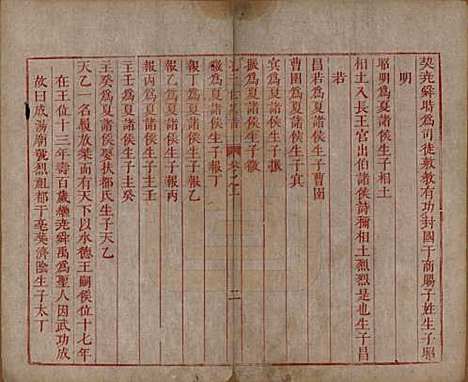 契堯舜時爲司徒敷敎有功封國于商賜子姓生子昭
明
昭明爲夏諸侯生子相土
相土入長王官出伯諸侯詩稱相土烈烈是也生子昌
若
昌若爲夏諸侯生子曹圉
曹圉爲夏諸侯生子冥
冥爲夏諸侯生子振
振爲夏諸侯生子微
二
微爲夏諸侯生子報丁
報丁爲夏諸侯生子報乙
報乙爲夏諸侯生子報丙
報丙爲夏諸侯生子主壬
主壬爲夏諸侯生子主癸
主癸爲夏諸侯娶扶都氏生子天乙
天乙一名履放桀而有天下以水德王嗣侯位十七年
在王位十三年壽百歲繼堯舜禹爲聖人因武功成
故曰成湯廟號烈祖都于亳葬濟陰生子太丁